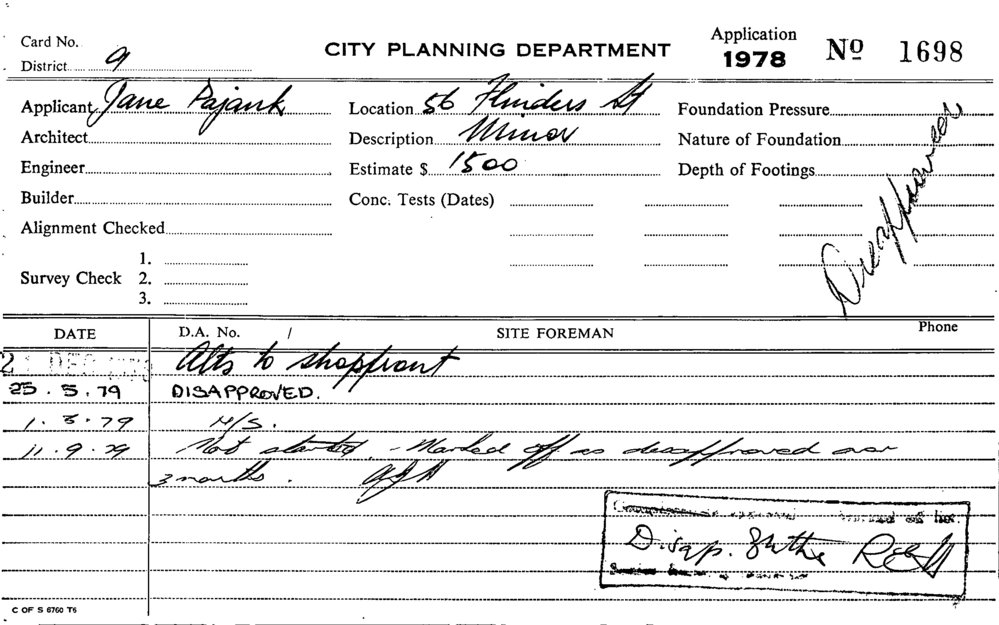 Card No.
CITY PLANNING DEPARTMENT
Application
1978 No 1698
District 9
Applicant Jane Pajank
Location 56 Flinders St
Foundation Pressure
Architect
Description Minor
Nature of Foundation
Engineer
Estimate $ 1500
Depth of Footings
Builder
Conc. Tests (Dates)
Alignment Checked
Disapproved
Survey Check 1.
2.
3.
DATE D.A. No. / SITE FOREMAN Phone
Alts to shopfront
25.5.79 DISAPPROVED.
1.3.79 N/S.
11.9.79 Not started. - Marked off as disapproved over
3 months.
Disap.
C OF S 6760 T6